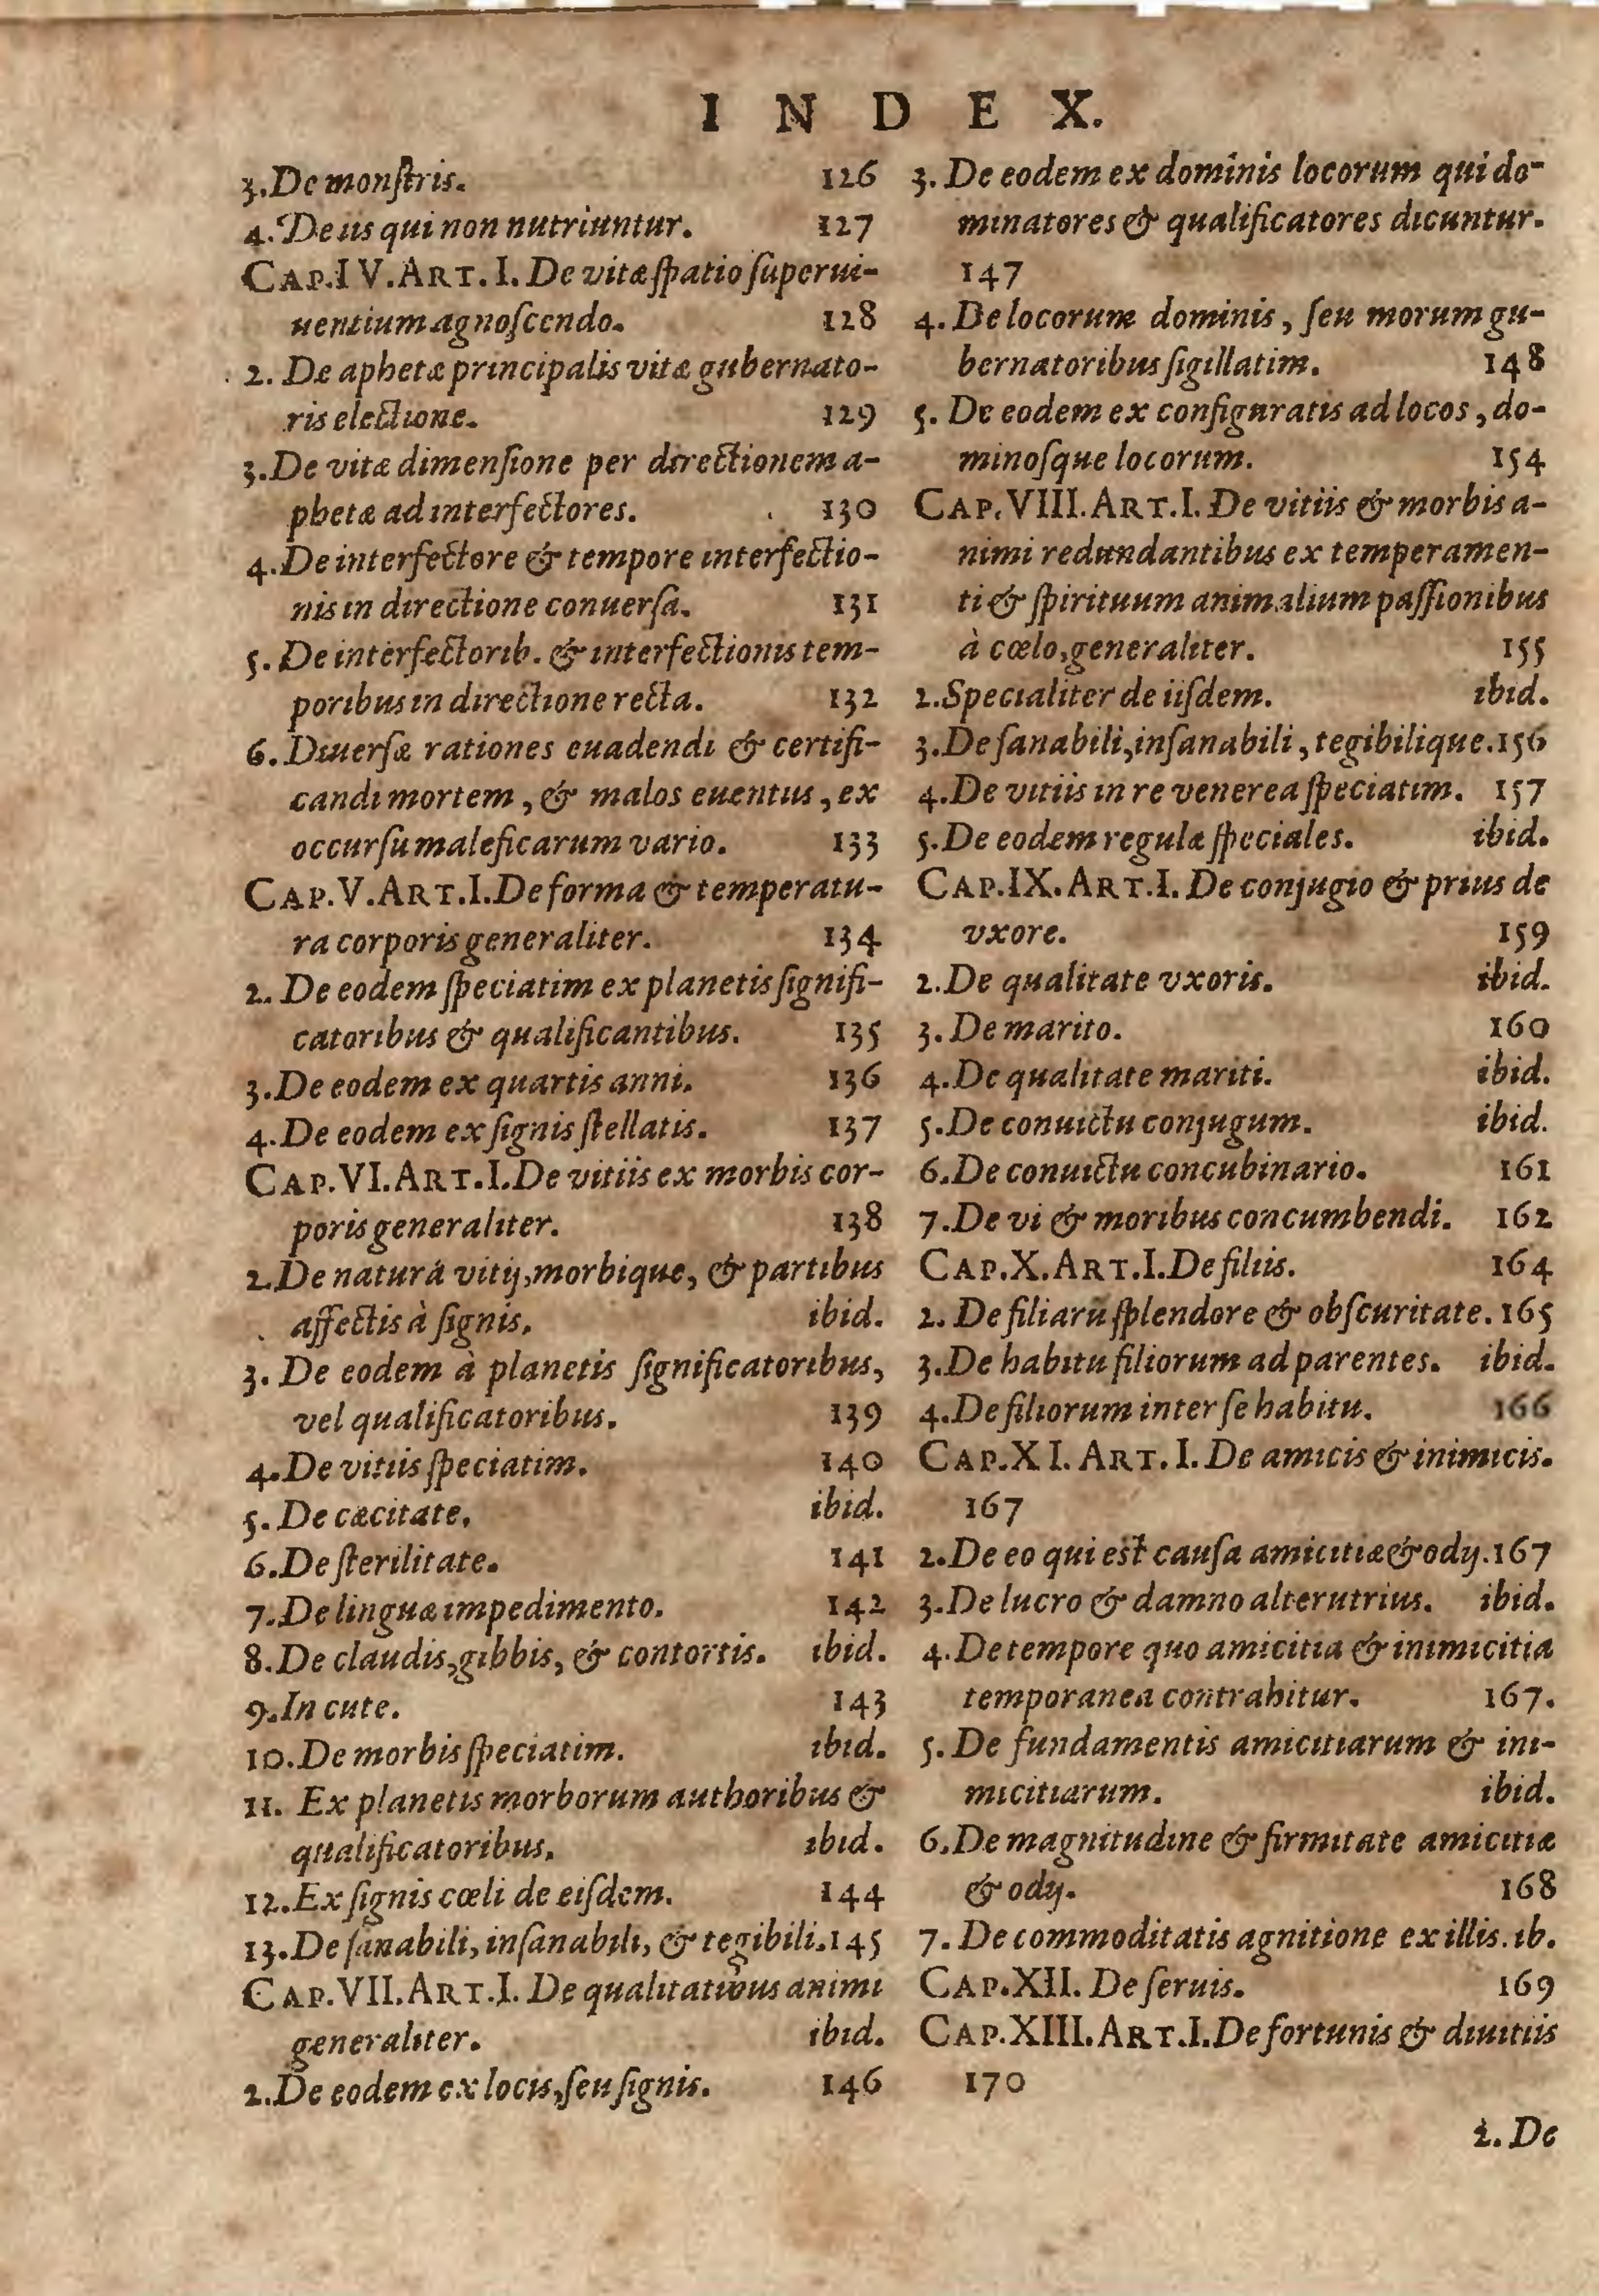 INDEX.
3.De monſtris. 126
4.De iis qui non nutriuntur. 127
CAP.IV.ART.I.De vitæ ſpatio ſuperui-
uentium agnoſcendo. 128
2. De aphetæ principalis vitæ gubernato-
ris electione. 129
3.De vitæ dimenſione per directionem a-
phetæ ad interfectores. 130
4.De interfectore & tempore interfectio-
nis in directione conuerſa. 131
5. De interfectorib. & interfectionis tem-
poribus in directione recta. 132
6. Diuerſæ rationes euadendi & certifi-
candi mortem, & malos euentus, ex
occurſu maleficarum vario. 133
CAP.V.ART.I.De forma & temperatu-
ra corporis generaliter. 134
2. De eodem ſpeciatim ex planetis ſignifi-
catoribus & qualificantibus. 135
3.De eodem ex quartis anni. 136
4.De eodem ex ſignis ſtellatis. 137
CAP.VI.ART.I.De vitiis ex morbis cor-
poris generaliter. 138
2.De naturâ vitij, morbique, & partibus
affectis à ſignis. ibid.
3. De eodem à planetis ſignificatoribus,
vel qualificatoribus. 139
4.De vitiis ſpeciatim. 140
5. De cæcitate. ibid.
6.De ſterilitate. 141
7.De linguæ impedimento. 142
8.De claudis, gibbis, & contortis. ibid.
9.In cute. 143
10.De morbis ſpeciatim. ibid.
11. Ex planetis morborum authoribus &
qualificatoribus. ibid.
12.Ex ſignis cœli de eiſdem. 144
13.De ſanabili, inſanabili, & tegibili.145
CAP.VII.ART.I. De qualitatibus animi
generaliter. ibid.
2.De eodem ex locis, ſeu ſignis. 146
3. De eodem ex dominis locorum qui do-
minatores & qualificatores dicuntur.
147
4. De locorum dominis, ſeu morum gu-
bernatoribus ſigillatim. 148
5. De eodem ex configuratis ad locos, do-
minoſque locorum. 154
CAP.VIII.ART.I. De vitiis & morbis a-
nimi redundantibus ex temperamen-
ti & ſpirituum animalium paſſionibus
à cœlo, generaliter. 155
2.Specialiter de iiſdem. ibid.
3.De ſanabili, inſanabili, tegibilique.156
4.De vitiis in re venerea ſpeciatim. 157
5.De eodem regulæ ſpeciales. ibid.
CAP.IX.ART.I. De conjugio & prius de
vxore. 159
2.De qualitate vxoris. ibid.
3. De marito. 160
4.De qualitate mariti. ibid.
5.De conuictu conjugum. ibid.
6.De conuictu concubinario. 161
7.De vi & moribus concumbendi. 162
CAP.X.ART.I.De filiis. 164
2. De filiarũ ſplendore & obſcuritate. 165
3.De habitu filiorum ad parentes. ibid.
4.De filiorum inter ſe habitu. 166
CAP.XI. ART. I. De amicis & inimicis.
167
2.De eo qui eſt cauſa amicitiæ & odij.167
3.De lucro & damno alterutrius. ibid.
4.De tempore quo amicitia & inimicitia
temporanea contrahitur. 167.
5. De fundamentis amicitiarum & ini-
micitiarum. ibid.
6.De magnitudine & firmitate amicitiæ
& odij. 168
7. De commoditatis agnitione ex illis. ib.
CAP.XII. De ſeruis. 169
CAP.XIII.ART.I.De fortunis & diuitiis
170
2. De